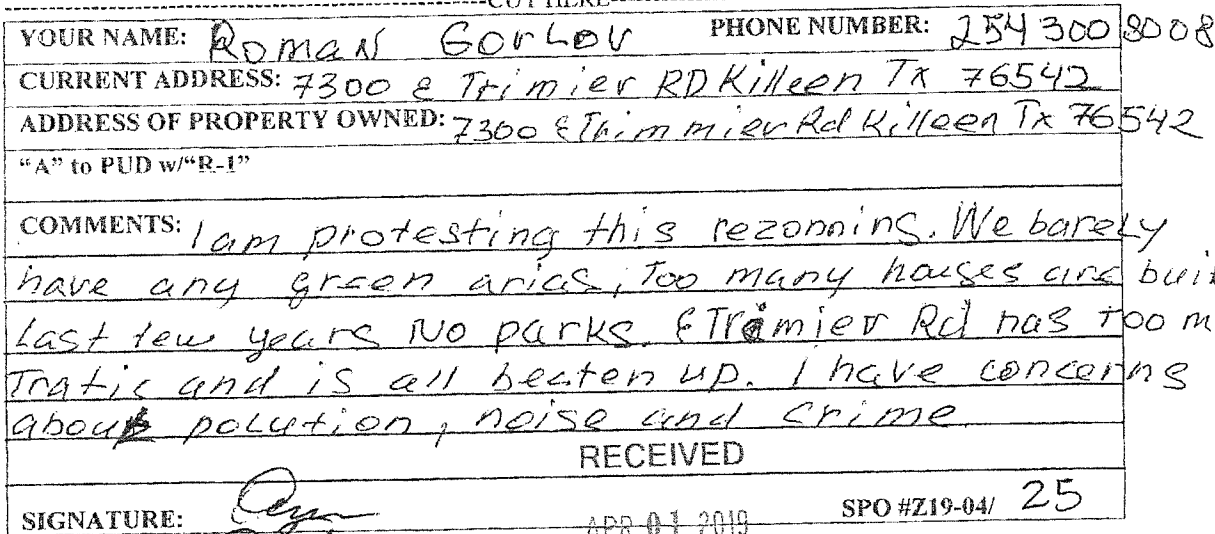 CUT HERE
YOUR NAME: Roman Gorlov PHONE NUMBER: 254 300 8008
CURRENT ADDRESS: 7300 E Trimier RD Killeen Tx 76542
ADDRESS OF PROPERTY OWNED: 7300 E Trimmier Rd Killeen Tx 76542
"A" to PUD w/"R-1"
COMMENTS: I am protesting this rezonning. We barely
have any green arias, Too many houses are buil
Last few years No parks. E Tramier Rd has too m
Trafic and is all beaten up. I have concerns
about polution, noise and crime
RECEIVED
SIGNATURE: APR 01 2019 SPO #Z19-04/ 25